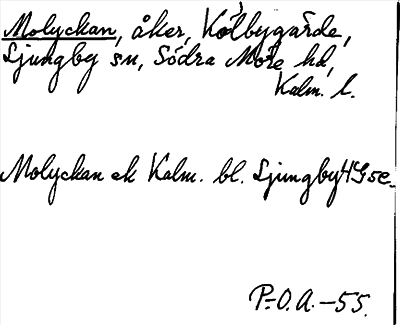 Molyckan, åker, Kölbygärde,
Ljungby sn, Södra Möre hd,
Kalm. l.
Molyckan ek Kalm. bl. Ljungby 4G5e.
P-O.A.-55.